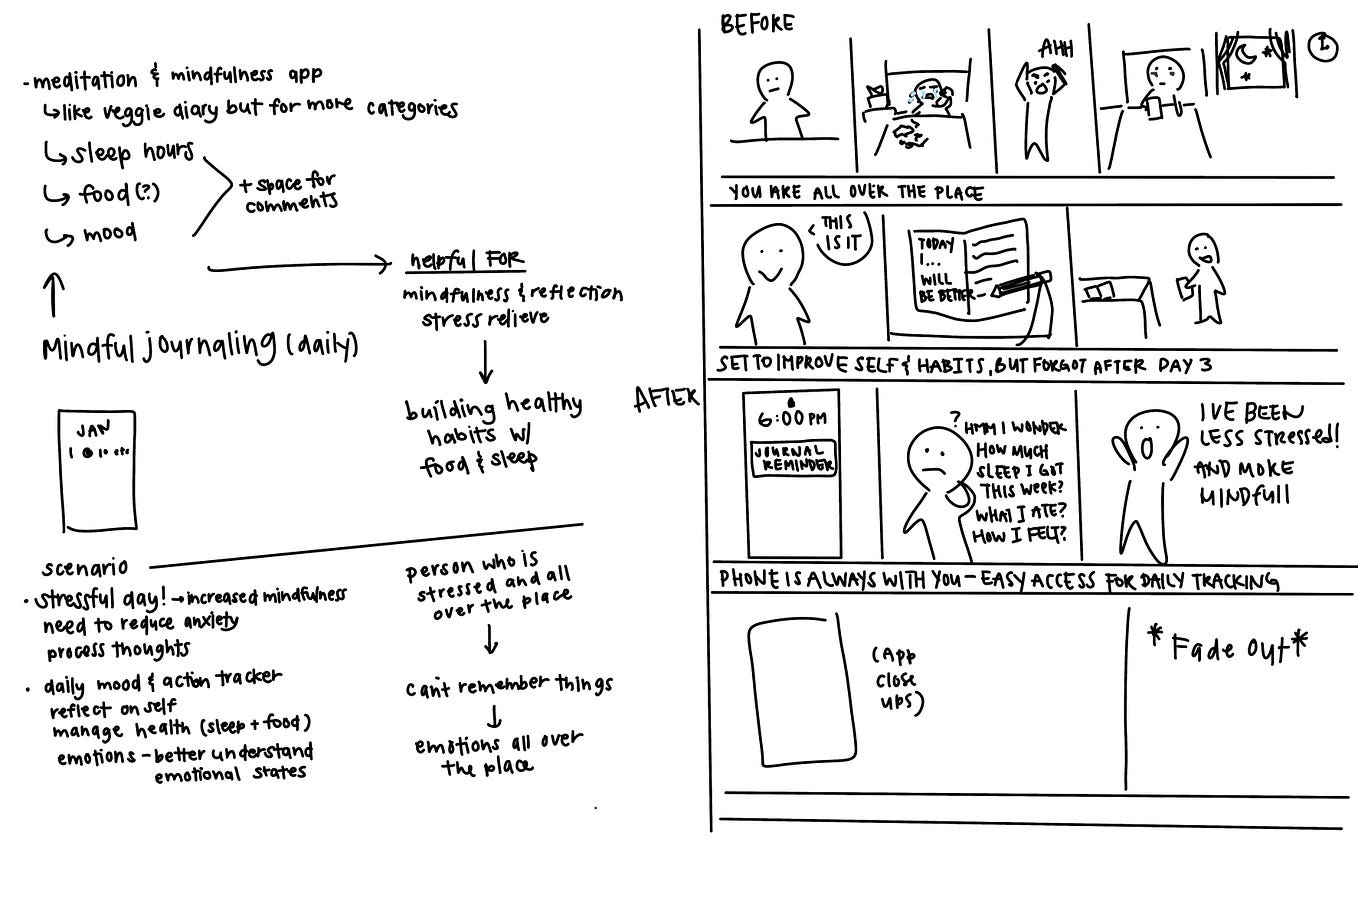 -meditation & mindfulness app
↳like veggie diary but for more categories
↳sleep hours
↳food(?)
↳mood
+ space for
comments
helpful FOR
mindfulness & reflection
stress relieve
Mindful journaling (daily)
building healthy
habits w/
food & sleep
JAN
scenario
• stressful day! → increased mindfulness
need to reduce anxiety
process thoughts
• daily mood & action tracker
reflect on self
manage health (sleep + food)
emotions - better understand
emotional states
person who is
stressed and all
over the place
can't remember things
emotions all over
the place
BEFORE
AHH
YOU ARE ALL OVER THE PLACE
THIS
IS IT
TODAY
I...
WILL
BE BETTER
SET TO IMPROVE SELF & HABITS, BUT FORGOT AFTER DAY 3
AFTER
6:00 PM
JOURNAL
REMINDER
?
HMM I WONDER
HOW MUCH
SLEEP I GOT
THIS WEEK?
WHAT I ATE?
HOW I FELT?
I'VE BEEN
LESS STRESSED!
AND MORE
MINDFULL
PHONE IS ALWAYS WITH YOU - EASY ACCESS FOR DAILY TRACKING
(APP
CLOSE
UPS)
*Fade Out*